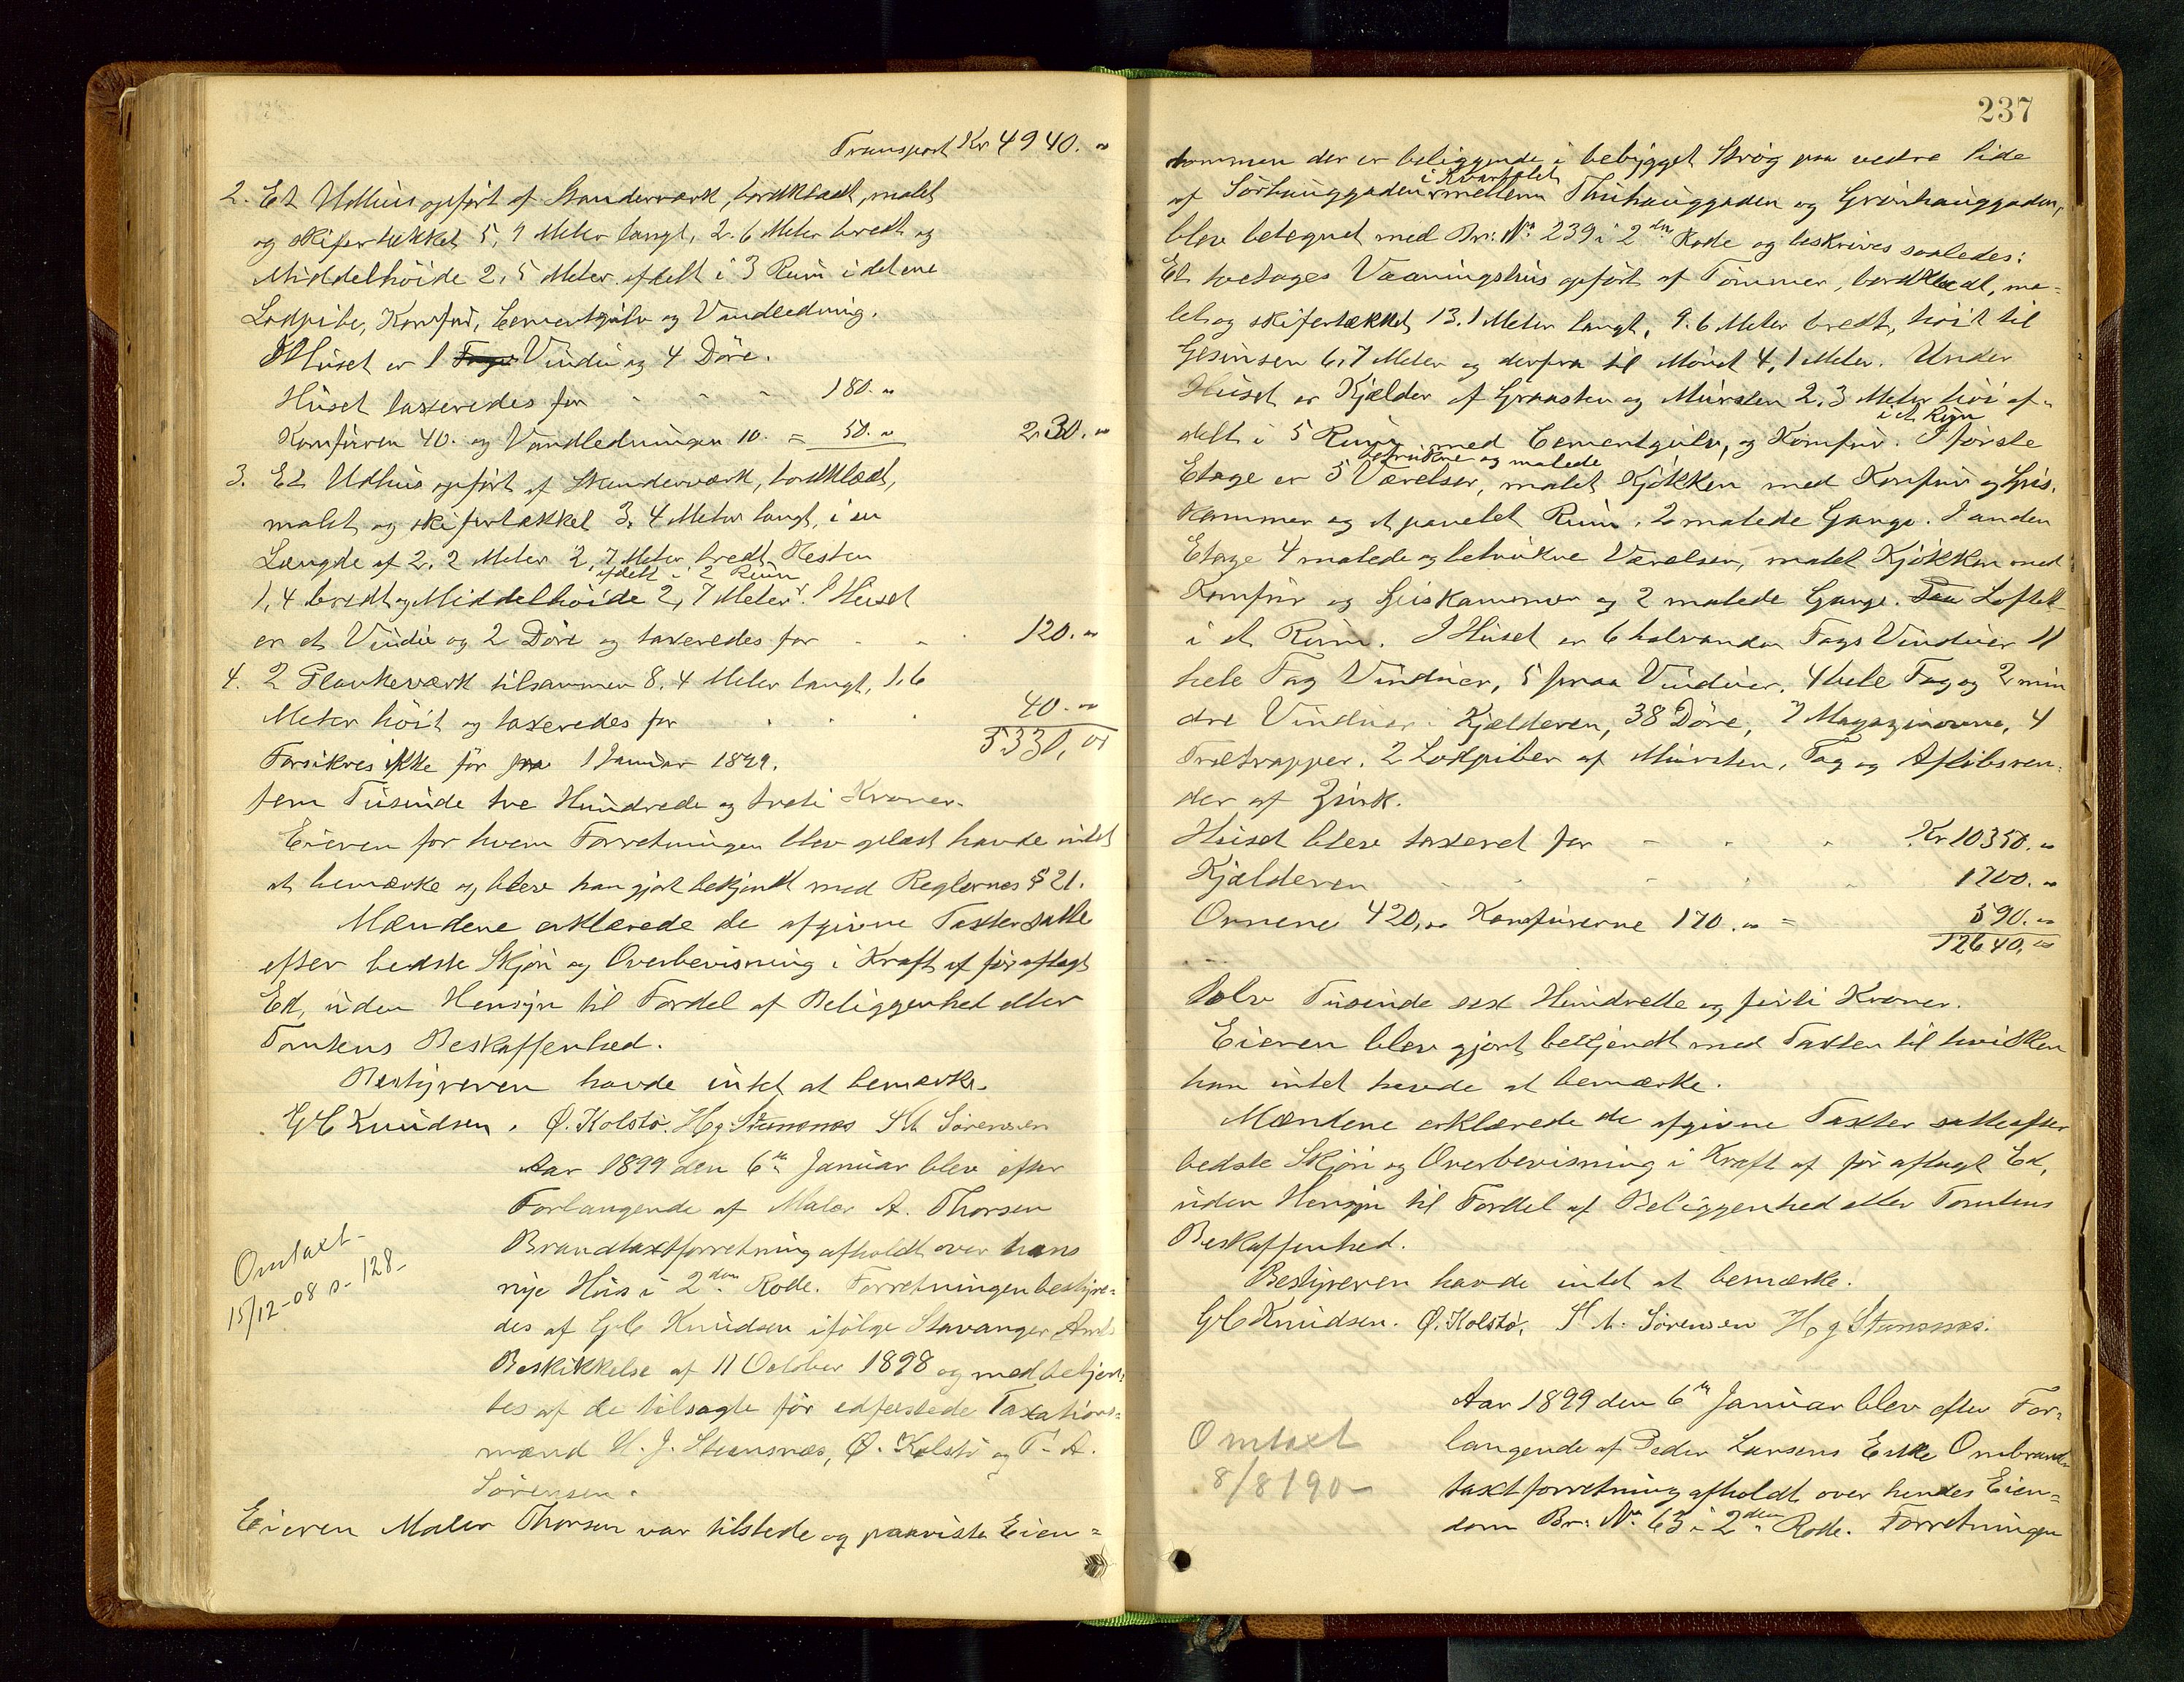 Transport Kr 4940.„
2. Et Udhus opført af Standerværk, bordklædt, malet
og skifertækket 5,9 Meter langt, 2.6 Meter bredt og
Middelhöide 2,5 Meter afdelt i 3 Rum i det ene
Lodpibe, Komfur, Cementgulv og Vandledning.
I Huset er 1 Vindu og 4 Döre.
Huset taxeredes for - - - 180.„
Komfuren 40. og Vandledningen 10. = 50.„ 230.„
3. Et Udhus opført af Standerværk, bordklædt,
malet og skifertækket 3,4 Meter langt, i en
Længde af 2,2 Meter 2,7 Meter bredt Resten
afdelt i 2 Rum
1,4 bredt og Middelhöide 2,7 Meter. I Huset
er et Vindu og 2 Döre og taxeredes for - - 120.„
4. 2 Plankeværk tilsammen 8.4 Meter langt, 1.6
Meter höit og taxeredes for . . . 40.„
5330,„
Forsikres ikke för 1 Januar 1899.
fem Tusinde tre Hundrede og treti Kroner.
Eieren for hvem Forretningen blev oplæst havde intet
at bemærke og blev han gjort bekjendt med Reglernes § 21.
Mændene erklærede de afgivne Taxter satte
efter bedste Skjön og Overbevisning i Kraft af för aflagt
Ed, uden Hensyn til Fordel af Beliggenhed eller
Tomtens Beskaffenhed.
Bestyreren havde intet at bemærke.
G C Knudsen. Ø. Kolstø. H J Stensnæs T A Sörensen
Aar 1899 den 6te Januar blev efter
Forlangende af Maler A. Thorsen
Brandtaxtforretning afholdt over hans
nye Hus i 2den Rode. Forretningen bestyre=
des af G C Knudsen ifölge Stavanger Amts
Beskikkelse af 11 October 1898 og medbetjen=
tes af de tilsagte för edfæstede Taxations=
mænd H. J. Stensnæs, Ø. Kolstö og T. A.
Sörensen.
Omtaxt-
15/12-08 s- 128-
Eieren Maler Thorsen var tilstede og paaviste Eien=
237
dommen der er beliggende i bebygget Strög paa vestre Side
i Kvartalet
af Sörhauggaden mellem Thuhauggaden og Grönhauggaden,
blev betegnet med Br: No 239 i 2den Rode og beskrives saaledes:
Et toetages Vaaningshus opfört af Tömmer, bordklædt, ma=
let og skifertækket 13.1 Meter langt, 9.6 Meter bredt, höit til
Gesimsen 6,7 Meter og derfra til Mönet 4,1 Meter. Under
Huset er Kjælder af Graasten og Mursten 2,3 Meter höi af=
i et Rum
delt i 5 Rum med Cementgulv, og Komfur. I förste
betrukne og malede
Etage er 5 Værelser, malet Kjökken med Komfur og Spis.
kammer og et panelet Rum, 2 malede Gange. I anden
Etage 4 malede og betrukne Værelser, malet Kjökken med
Komfur og Spiskammer og 2 malede Gange. Loftet
i et Rum. I Huset er 6 halvanden Fags Vinduer 11
hele Fag Vinduer, 5 smaa Vinduer, 4 hele Fag og 2 min
dre Vinduer i Kjælderen, 38 Döre, 7 Magazinovne, 4
Trætrapper, 2 Lodpiber af Mursten, Tag og Aflöbsren=
der af Zink.
Huset blev taxeret for - - - Kr 10350.„
Kjælderen - - - - 1700.„
Ovnene 420,„ Komfurerne 170.„ = 590.„
12640,„
tolv Tusinde sex Hundrede og firti Kroner.
Eieren blev gjort bekjendt med Taxten til hvilken
han intet havde at bemærke.
Mændene erklærede de afgivne Taxter satte efter
bedste Skjön og Overbevisning i Kraft af för aflagt Ed,
uden Hensyn til Fordel af Beliggenhed eller Tomtens
Beskaffenhed.
Bestyreren havde intet at bemærke.
G C Knudsen. Ø. Kolstø. T A. Sörensen H J Stensnæs.
Aar 1899 den 6te Januar blev efter For=
langende af Peder Larsens Enke Ombrand=
taxtforretning afholdt over hendes Eien=
dom Br: No 63 i 2den Rode. Forretningen
Omtaxt
8/8 190-